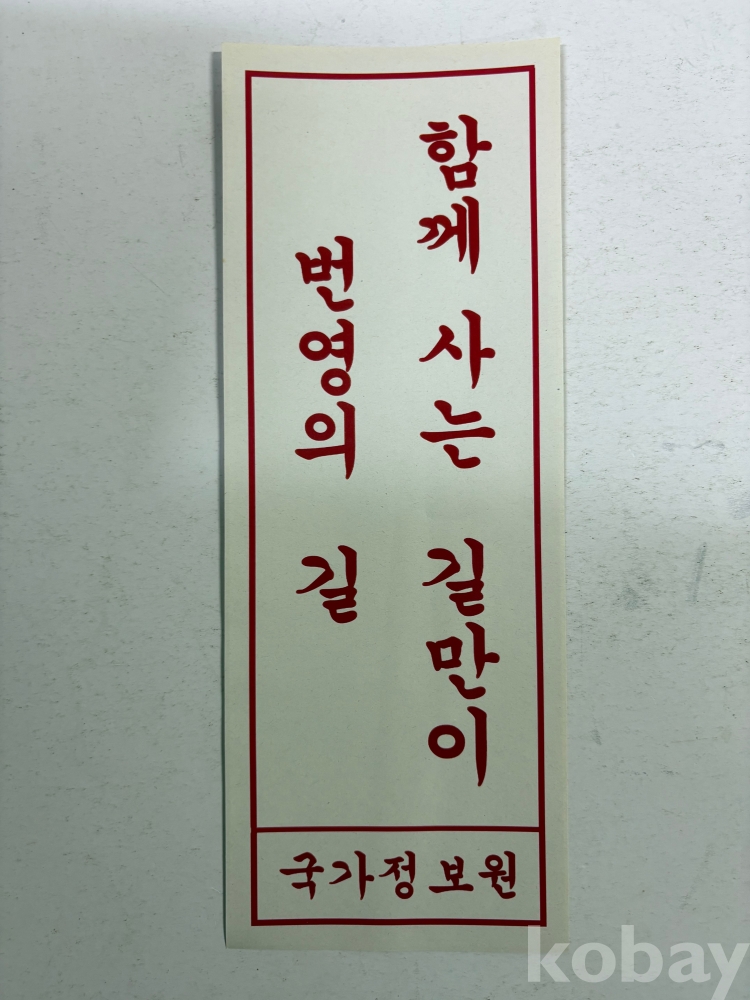 함께 사는 길만이
번영의 길
국가정보원
kobay